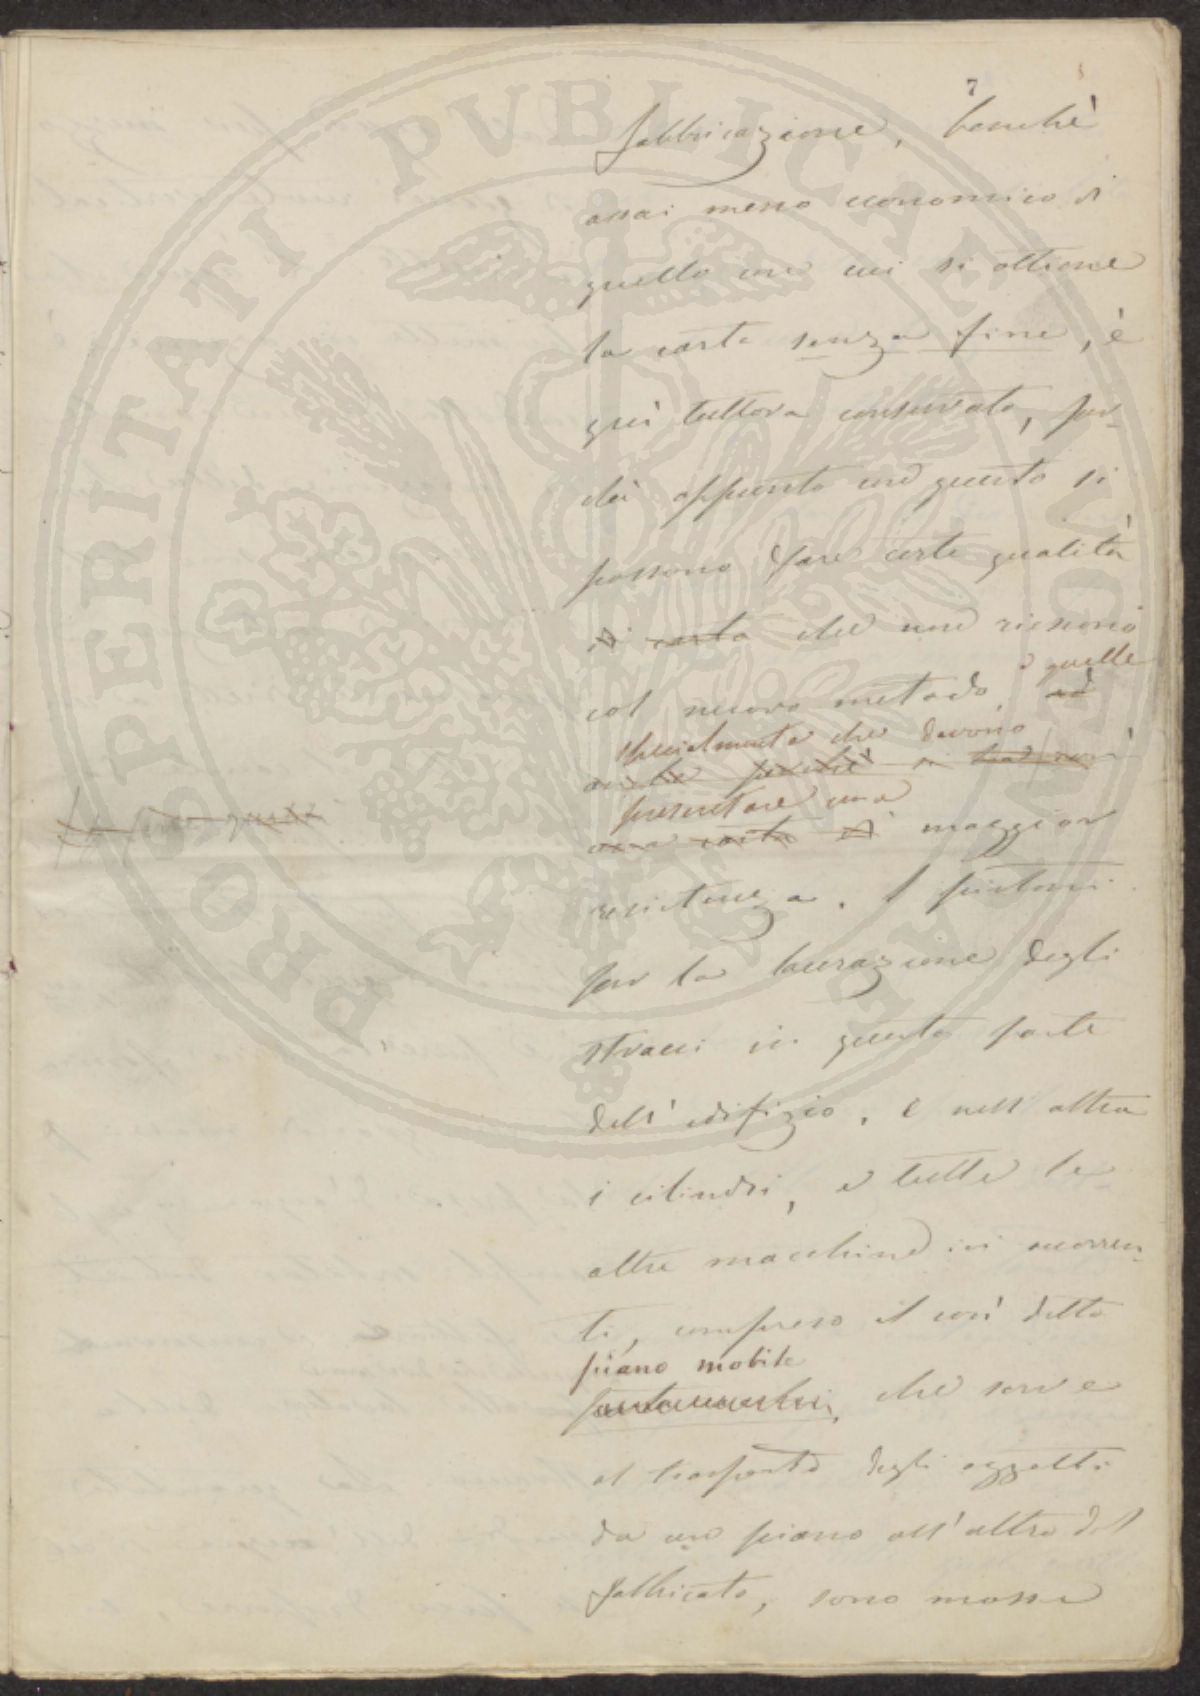 PROSPERITATI PVBLICAE AVGENDAE
7
fabbricazione, benchè
assai meno economico di
quello con cui si ottiene
la carta senza fine, è
quì tuttora conservato, per-
chè appunto con questo si
possono fare certe qualità
di carta che non riescono
e quelle
col nuovo metodo, ed
specialmente che devono
anche perchè si
presentare una
una carta di maggior
resistenza. I pistoni
per la lacerazione degli
stracci in questa parte
dell'edifizio, e nell'altra
i cilindri, e tutte le
altre macchine ivi occorren-
ti, compreso il così detto
piano mobile
che serve
al trasporto degli oggetti
da un piano all'altro del
fabbricato, sono mosse